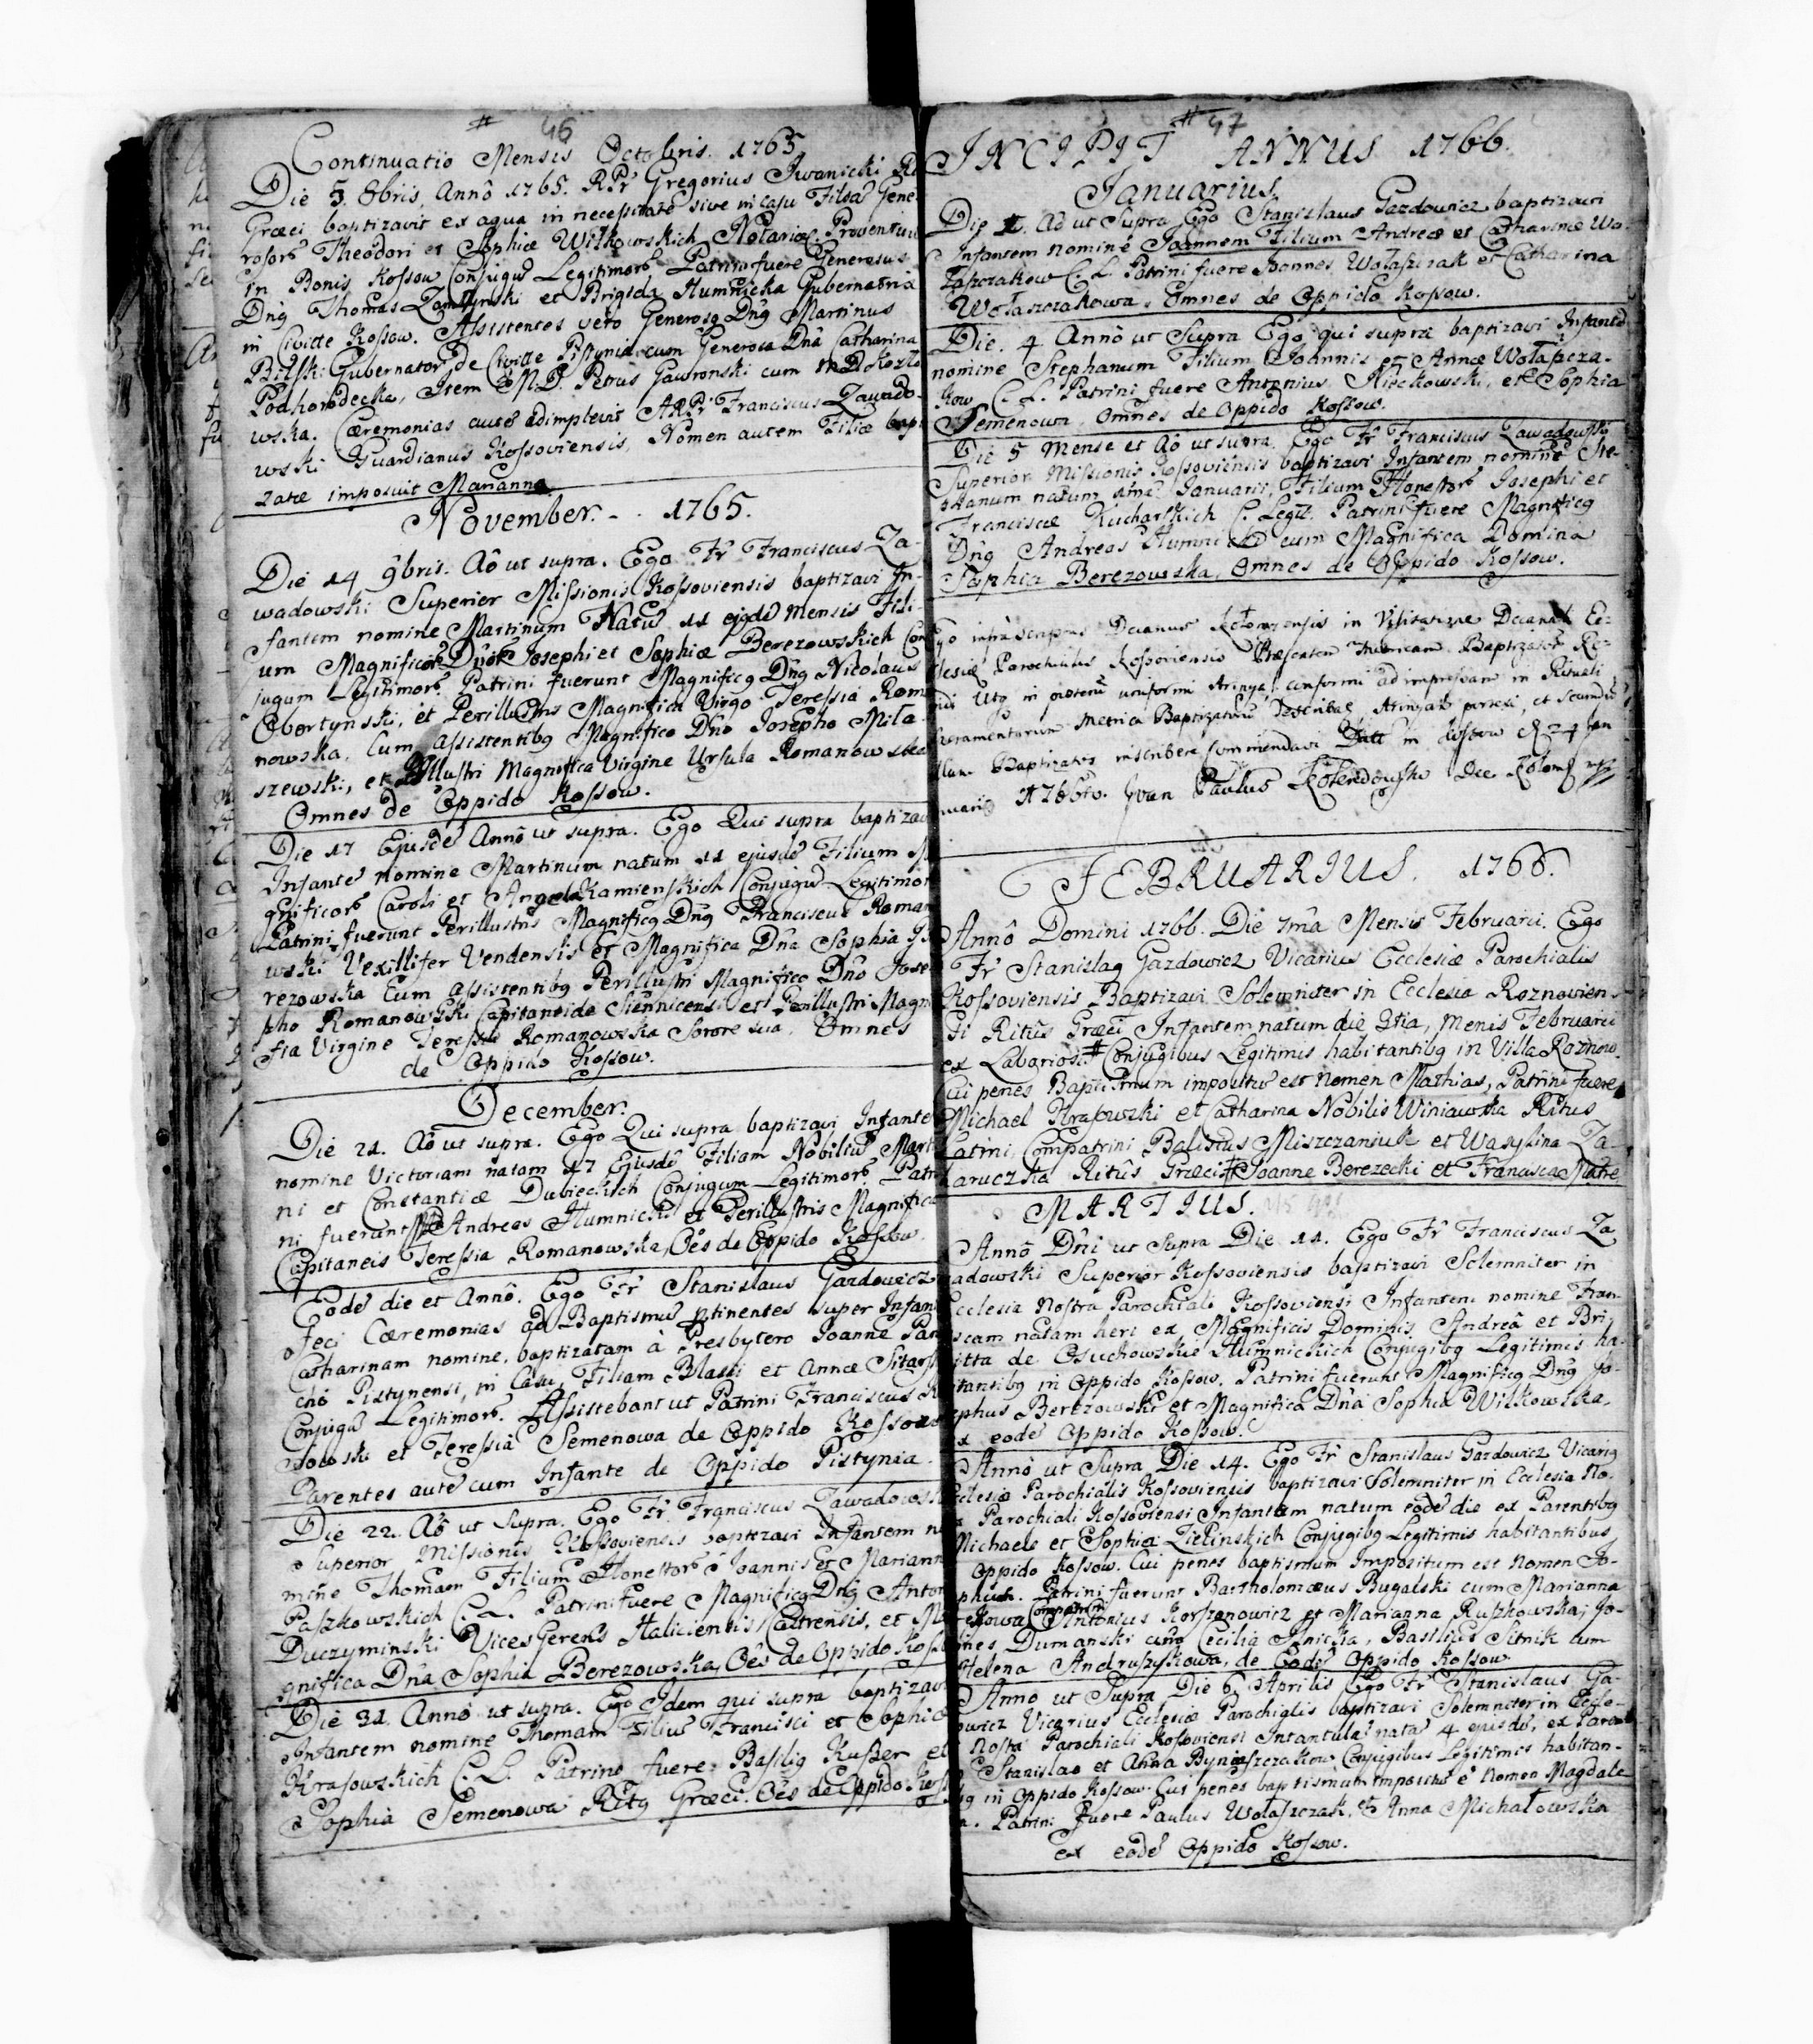 # 46
Continuatio Mensis Octobris. 1765
Die 5. 8bris, Annô 1765. RPr Gregorius Iwanicki
Græci baptizavit ex aqua in necessitate sive in casu Filia Gene
rosor Theodori et Sophiæ Wilkowskich Notariæ Proventuu
in Bonis Kossow Conjugu Legitimor. Patrini fuere Generosus
Dnq Thomas et Brigida Humnicka Gubernatria
in Civitte Kossow. Assistentes vero Generosq Dnq Martinus
Bilski Gubernator de Civitte Pistynia cum Generosa Dna Catharina
Podhorodecka, Item M.D. Petrus Gawronski cum MD Kozlo
wska. Cæremonias aute adimplevit ARPr Franciscus Zawado-
wski Guardianus Kossoviensis, Nomen autem Filiæ bapt
zatæ imposuit Marianna
November. - . 1765.
Die 14 9bris. Aô ut supra. Ego Fr Franciscus Za-
wadowski Superior Missionis Kossoviensis baptizavi In-
fantem nomine Martinum Natu 11 ejqde mensis Fili-
um Magnificor Dnor Josephi et Sophiæ Berezowskich Con
jugum Legitimor. Patrini fuerunt Magnificq Dnq Nicolaus
Obertynski, et Perillustris Magnifica Virgo Teressia Roma
nowska, Cum Assistentibq Magnifico Dno Josepho Mila-
szewski, et Illustri Magnifica Virgine Ursula Romanowska
Omnes de Oppido Kossow.
Die 17 Ejusde Annô ut supra. Ego Qui supra baptizavi
Infante nomine Martinum natum 11 ejusde Filium M
gnificor Caroli et Angela Kamienskich Conjugu Legitimor
Patrini fuerunt Perillustris Magnificq Dnq Franciscus Roman
wski Vexillifer Vendensis et Magnifica Dna Sophia
rezowska Cum assistentibq Perillustri Magnifico Dno Jose
pho Romanowski Capitaneide Siennicensi et Perillustri Magni
fia Virgine Teressia Romanowska Sorore sua, Omnes
de Oppido Kossow.
December.
Die 21. Aô ut supra. Ego Qui supra baptizavi Infante
nomine Victoriam natam 17 Ejusde Filiam Nobiliu Marti
ni et Constantiæ Dubieckich Conjugum Legitimor. Patri
ni fuerunt MD Andreas Humnicki et Perillustris Magnifica
Capitaneis Teressia Romanowska, Oes de Oppido Kossow.
Eode die et Annô. Ego Fr Stanislaus Gazdowicz
feci Cæremonias ad Baptismu ptinentes super Infan
Catharinam nomine, baptizatam à Presbytero Joanne Par
cho Pistynensi, in Casu, Filiam Blasii et Annæ
Conjugu Legitimor. Assistebant ut Patrini Franciscus
sowski et Teressia Semenowa de Oppido Kossow
Parentes aute cum Infante de Oppido Pistynia.
Die 22. Aô ut supra. Ego Fr. Franciscus Zawadowski
Superior Missionis Kossoviensis baptizavi Infantem no
mine Thomam Filium Honestor Joannis et Mariann
Paszkowskich C. L. Patrini fuere Magnificq Dnq Anton
Duczyminski Vices Gerens Haliciensis Castrensis, et Ma
gnifica Dna Sophia Berezowska, Oes de Oppido Kossow
Die 31. Annô ut supra. Ego Idem qui supra baptizavi
Infantem nomine Thomam Filiu Francisci et Sophiæ
Krasowskich C. L. Patrini fuere Basiliq Kuszer et
Sophia Semenowa Ritq Græci. Oes de Oppido Koss
# 47
INCIPIT ANNUS 1766.
Januarius.
Die 1. Aô ut Supra Ego Stanislaus Gazdowicz baptizavi
Infantem nomine Joannem Filium Andreæ et Catharinæ Wo-
łaszczakow C. L. Patrini fuere Joannes Wołaszczak et Catharina
Wołaszczakowa, Omnes de Oppido Kossow.
Die. 4 Annô ut Supra Ego qui supra baptizavi Infante
nomine Stephanum Filium Joannis et Annæ Wołaszcza-
kow C. L. Patrini fuere Antonius et Sophia
Semenowa Omnes de Oppido Kossow.
Die 5 Mense et Aô ut supra. Ego Fr Franciscus Zawadowski
Superior Missionis Kossoviensis baptizavi Infantem nomine Ste-
phanum natum Januarii, Filium Honestor Josephi et
Franciscæ Kucharskich C. Legit. Patrini fuere Magnificq
Dnq Andreas Humnicki cum Magnifica Domina
Sophia Berezowska, Omnes de Oppido Kossow.
Ego infrascriptus Decanus in Visitatione Decanali Ec-
clesiæ Parochialis Kossoviensis Præsentem Rubricam Baptizator
Utq in posteru uniformi conformi ad impressam in Rituali
Sacramentorum Metrica Baptizatoru et secundu
illam Baptizatos inscribere Commendavi Datt in Kossow d. 24 Jan
nuarii 1766to. Paulus Dec
FEBRUARIUS. 1766.
Annô Domini 1766. Die 7ma Mensis Februarii. Ego
Fr Stanislaq Gazdowicz Vicarius Ecclesiæ Parochialis
Kossoviensis Baptizavi Solemniter in Ecclesia Roznovien-
si Ritûs Græci Infantem natum die 3tia, Menis Februarii
ex Laboriosis # Conjugibus Legitimis habitantibq in Villa Roznow.
Cui penes Baptismum impositu est Nomen Mathias, Patrini fuere
Michael Krasowski et Catharina Nobilis Winiawska Ritus
Latini, Compatrini Basilius Miszczaniuk et Wasylina Za-
haruczka Ritûs Græci # Joanne Berezecki et Francisca Matre
MARTIUS.
Annô Dni ut Supra Die 11. Ego Fr Franciscus Za
wadowski Superior Kossoviensis baptizavi Solemniter in
Ecclesia Nostra Parochiali Kossoviensi Infantem nomine Fran-
ciscam natam heri ex Magnificis Dominis Andreâ et Bri
gitta de Osuchowskie Humnickich Conjugibq Legitimis ha-
bitantibq in Oppido Kossow. Patrini fuerunt Magnificq Dnq Jo-
sephus Berezowski et Magnifica Dna Sophia Wilkowska,
ex eode Oppido Kossow.
Annô ut Supra Die 14. Ego Fr Stanislaus Gazdowicz Vicariq
Ecclesiæ Parochialis Kossoviensis baptizavi Solemniter in Ecclesia No-
stra Parochiali Kossoviensi Infantem natum eode die ex Parentibq
Michaele et Sophia Zielinskich Conjugibq Legitimis habitantibus
Oppido Kossow. Cui penes baptismum Impositum est Nomen Jo-
sephus. Patrini fuerunt Bartholomæus Bugalski cum Marianna
kowa Compatrini Antonius Korszonowicz et Marianna Ruszkowska, Jo-
annes Dumanski cum Cecilia Ilnicka, Basilius Sitnik cum
Helena Andruszykowa, de Eode Oppido Kossow.
Anno ut Supra Die 6 Aprilis Ego Fr Stanislaus Ga-
zdowicz Vicarius Ecclesiæ Parochialis baptizavi Solemniter in Eccle-
sia Nostra Parochiali Kossoviensi Infantula nata 4 ejusde, ex Parent
Stanislao et Anna Conjugibus Legitimis habitan-
tibq in Oppido Kossow. Cui penes baptismum impositu e Nomen Magdale
na. Patrini fuere Paulus Wołaszczak, & Anna Michałowska
ex eode Oppido Kossow.